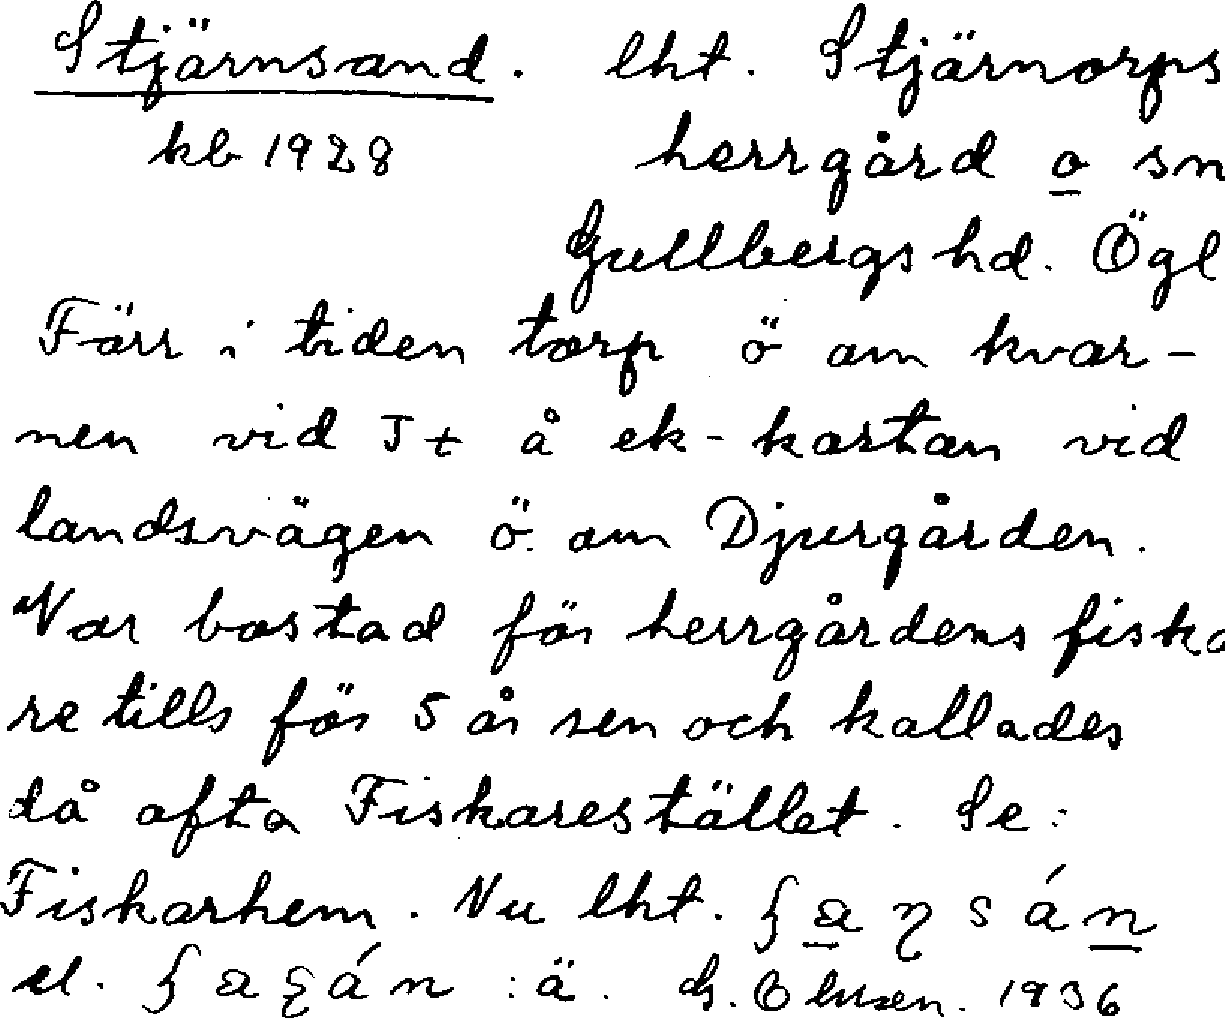 Stjärnsand. lht. Stjärnorps
kb 1928 herrgård o sn
Gullbergs hd. Ögl
Förr i tiden torp ö om kvar-
nen vid J+ å ek-kartan vid
landsvägen ö. om Djurgården.
Var bostad för herrgårdens fiska
re tills för 5 år sen och kallades
då ofta Fiskarestället. Se:
Fiskarhem. Nu lht.
el. :ä. G. 1936